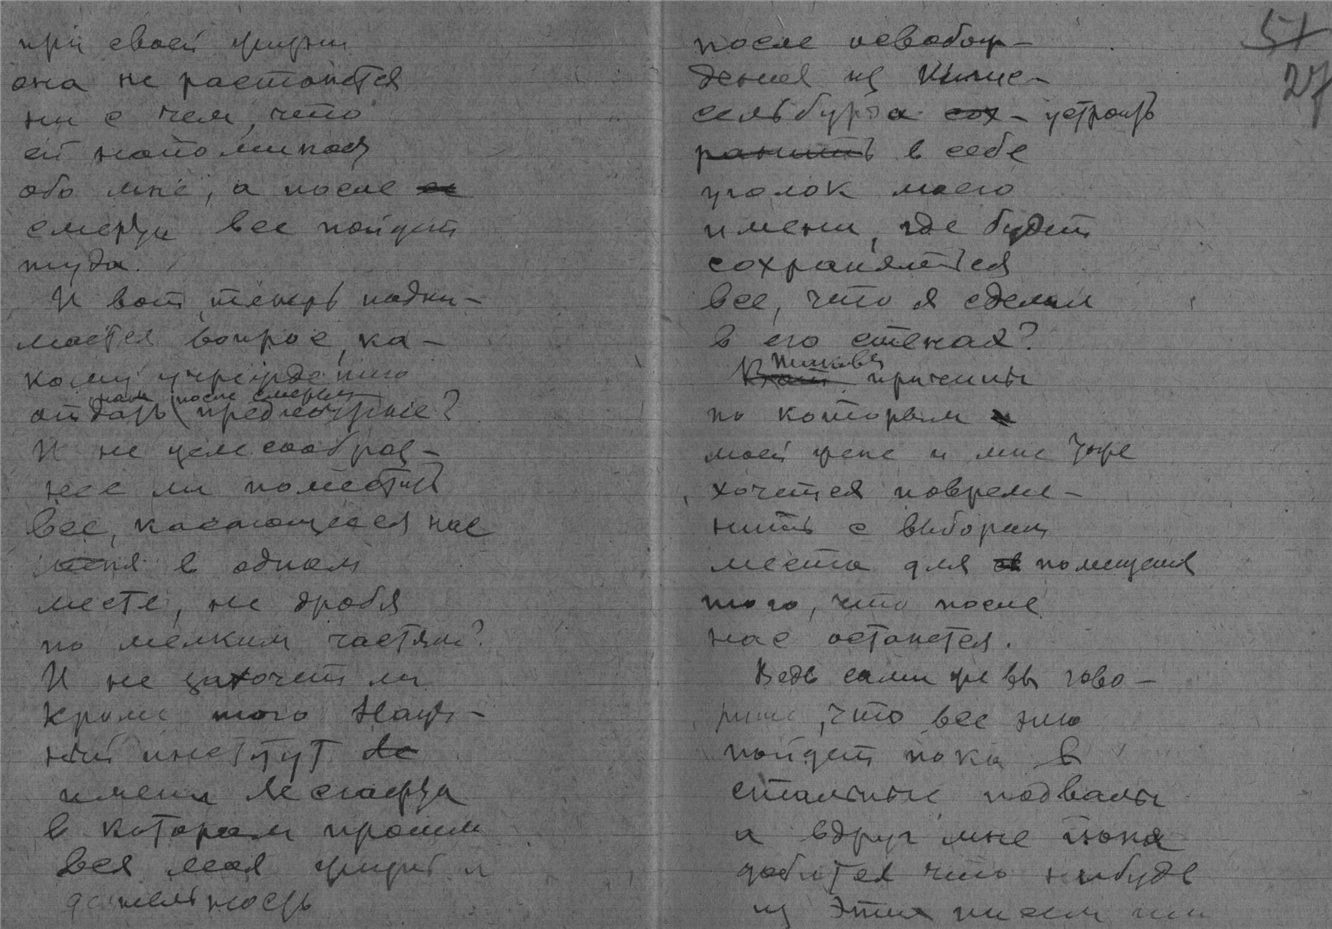 при своей жизни
она не растанется
ни с чем, что
ей напоминает
обо мне, а после
смерти все пойдет
туда.
И вот теперь подни-
мается вопрос, ка-
кому учреждению
нам после смерти
отдать предпочтение?
И не целесообраз-
нее ли поместить
все, касающееся нас
меня в одном
месте, не дробя
по мелким частям?
И не захочет ли
кроме того Науч-
ный институт
имени Лесгафта
в котором прошли
вся моя жизнь и
деятельность
51
27
после освобож-
дения из Шлис-
сельбурга сох- устроить
ранить в себе
уголок моего
имени, где будет
сохраняться
все, что я сделал
в его стенах?
Таковы
Вот причины
по которым
моей жене и мне тоже
хочется повреме-
нить с выбором
места для помещения
того, что после
нас останется.
Ведь сами же вы гово-
рите, что все это
пойдет пока в
стальные подвалы
а вдруг мне пона
добится что нибудь
из этих писем или